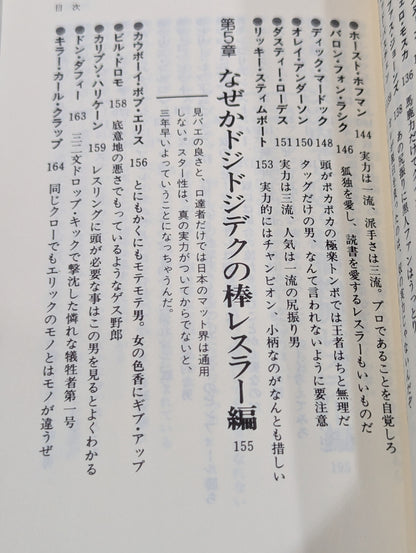 ホースト・ホフマン 144 実力は一流、派手さは三流。プロであることを自覚しろ
バロン・フォン・ラシク 146 孤独を愛し、読書を愛するレスラーもいいものだ
ディック・マードック 148 頭がポカポカの極楽トンボでは王者はちと無理だ
オレイ・アンダーソン 150 タッグだけの男、なんて言われないように要注意
ダスティー・ローデス 151 実力は三流、人気は一流の尻振り男
リッキー・スティムボート 153 実力的にはチャンピオン、小柄なのがなんとも惜しい
第5章 なぜかドジドジデクの棒レスラー編 155
見バエの良さと、口達者だけでは日本のマット界は通用
しない。スター性は、真の実力がついてからでないと、
三年早いよっていうことになっちゃうんだ。
カウボーイ・ボブ・エリス 156 とにもかくにもモテモテ男。女の色香にギブ・アップ
ビル・ドロモ 158 底意地の悪さでもっているようなゲス野郎
カリプソ・ハリケーン 159 レスリングに頭が必要な事はこの男を見るとよくわかる
ドン・ダフィー 163 三二文ドロップ・キックで撃沈した憐れな犠牲者第一号
キラー・カール・クラップ 164 同じクローでもエリックのモノとはモノが違うぜ
目次